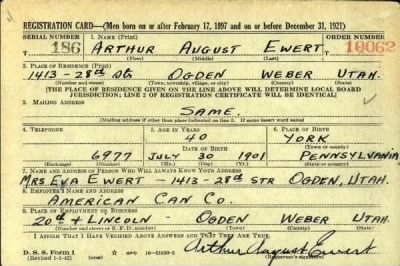 REGISTRATION CARD—(Men born on or after February 17, 1897 and on or before December 31, 1921)
SERIAL NUMBER 1. NAME (Print) ORDER NUMBER
186 ARTHUR AUGUST EWERT 10062
(First) (Middle) (Last)
2. PLACE OF RESIDENCE (Print)
1413 - 28th St OGDEN WEBER UTAH.
(Number and street) (Town, township, village, or city) (County) (State)
[THE PLACE OF RESIDENCE GIVEN ON THE LINE ABOVE WILL DETERMINE LOCAL BOARD
JURISDICTION; LINE 2 OF REGISTRATION CERTIFICATE WILL BE IDENTICAL]
3. MAILING ADDRESS
SAME.
[Mailing address if other than place indicated on line 2. If same insert word same]
4. TELEPHONE 5. AGE IN YEARS 6. PLACE OF BIRTH
40 YORK
DATE OF BIRTH (Town or county)
6977 JULY 30 1901 PENNSYLVANIA
(Exchange) (Number) (Mo.) (Day) (Yr.) (State or country)
7. NAME AND ADDRESS OF PERSON WHO WILL ALWAYS KNOW YOUR ADDRESS
MRS EVA EWERT - 1413 - 28th STR OGDEN, UTAH.
8. EMPLOYER'S NAME AND ADDRESS
AMERICAN CAN CO.
9. PLACE OF EMPLOYMENT OR BUSINESS
20th + LINCOLN - OGDEN WEBER UTAH
(Number and street or R. F. D. number) (Town) (County) (State)
I AFFIRM THAT I HAVE VERIFIED ABOVE ANSWERS AND THAT THEY ARE TRUE.
D. S. S. Form 1
(Revised 1-1-42) GPO 16—21630-2 Arthur August Ewert
(Registrant's signature)